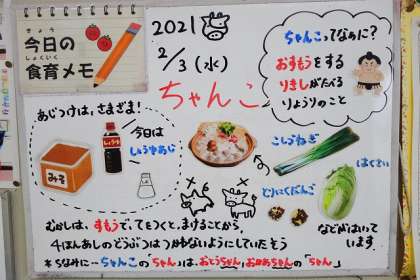 きょう
今日の
しょくいく
食育メモ
2021
2/3(水)
ちゃんこ
ちゃんこってなぁに?
おすもうをする
りきしがたべる
りょうりのこと
あじつけは、さまざま!
今日は
しょうゆあじ
しょうゆ
みそ
こねぎ
はくさい
とりにくだんご
などがはいって
います。
むかしは、すもうで、てをつくと、まけることから、
4ほんあしのどうぶつはつかわないようにしていたそう
*ちなみに…ちゃんこの「ちゃん」は、おとうちゃん、おかあちゃんの「ちゃん」